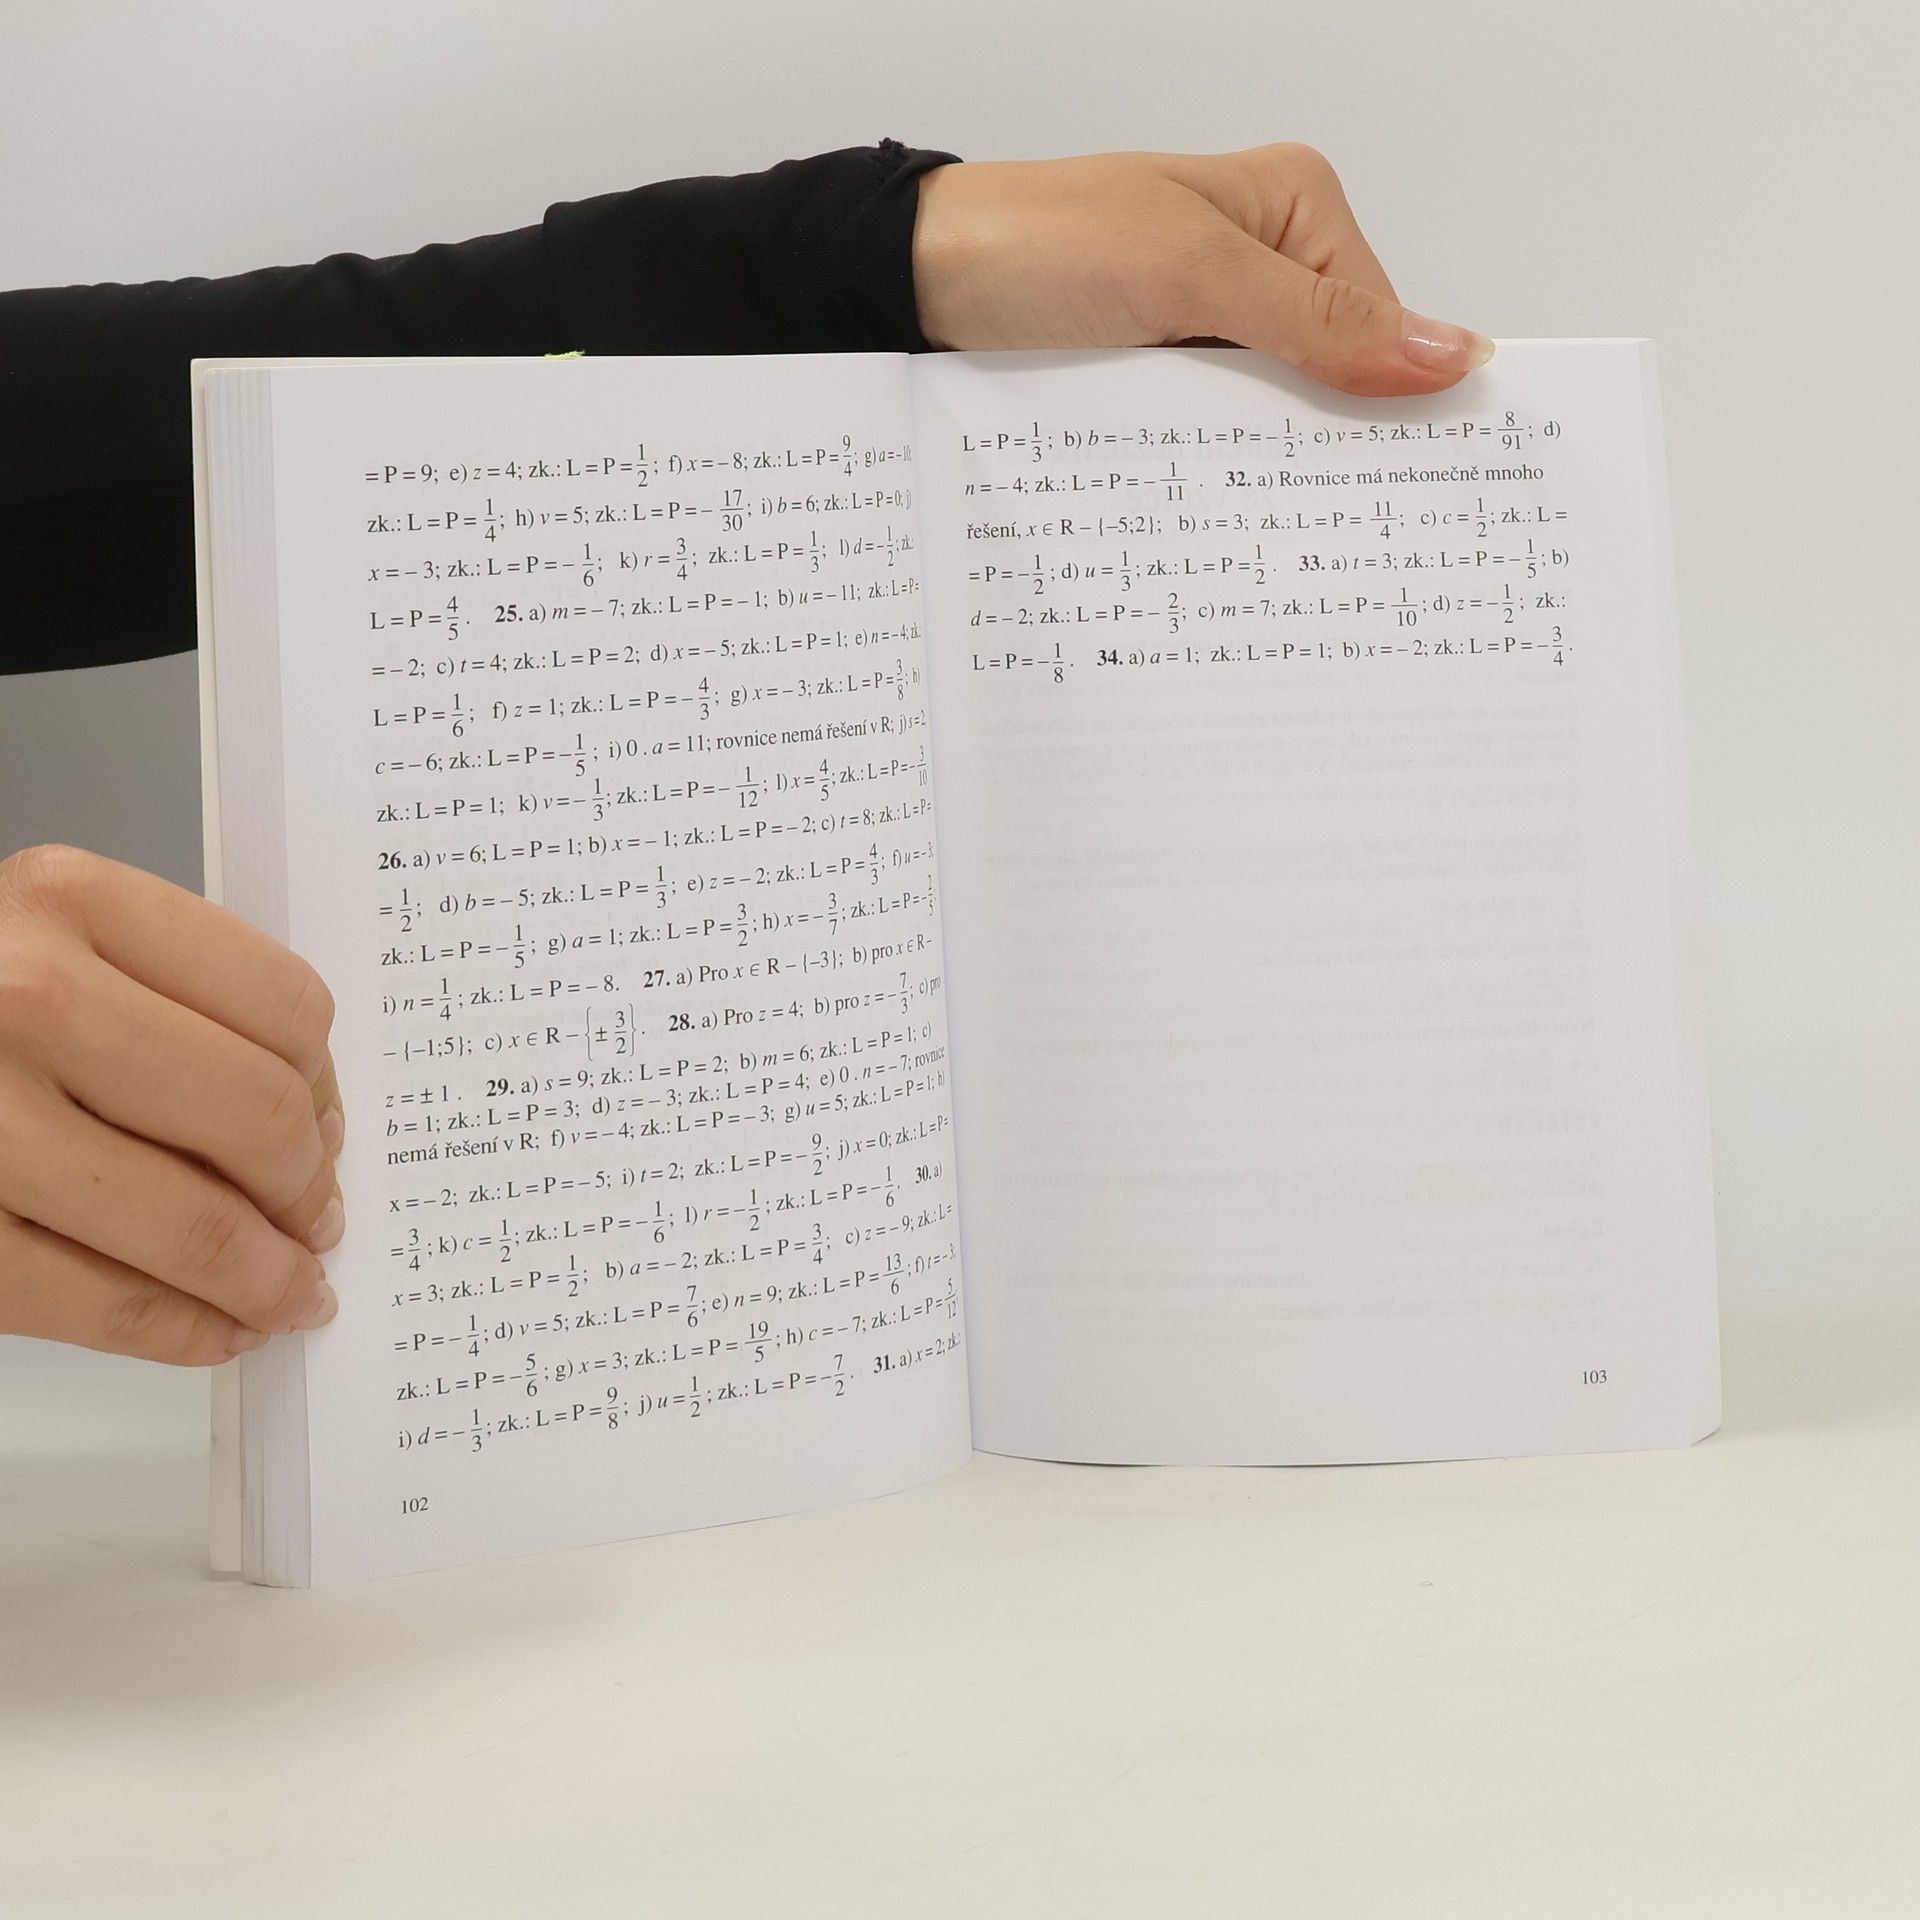 = P = 9; e) z = 4; zk.: L = P = 1/2; f) x = – 8; zk.: L = P = 9/4; g) a = – 10;
zk.: L = P = 1/4; h) v = 5; zk.: L = P = – 17/30; i) b = 6; zk.: L = P = 0; j)
x = – 3; zk.: L = P = – 1/6; k) r = 3/4; zk.: L = P = 1/3; l) d = – 1/2; zk.:
L = P = 4/5. 25. a) m = – 7; zk.: L = P = – 1; b) u = – 11; zk.: L = P =
= – 2; c) t = 4; zk.: L = P = 2; d) x = – 5; zk.: L = P = 1; e) n = – 4; zk.:
L = P = 1/6; f) z = 1; zk.: L = P = – 4/3; g) x = – 3; zk.: L = P = 3/8; h)
c = – 6; zk.: L = P = – 1/5; i) 0 . a = 11; rovnice nemá řešení v R; j) s = 2;
zk.: L = P = 1; k) v = – 1/3; zk.: L = P = – 1/12; l) x = 4/5; zk.: L = P = – 3/10
26. a) v = 6; L = P = 1; b) x = – 1; zk.: L = P = – 2; c) t = 8; zk.: L = P =
= 1/2; d) b = – 5; zk.: L = P = 1/3; e) z = – 2; zk.: L = P = 4/3; f) u = – 3;
zk.: L = P = – 1/5; g) a = 1; zk.: L = P = 3/2; h) x = – 3/7; zk.: L = P = – 2/5
i) n = 1/4; zk.: L = P = – 8. 27. a) Pro x ∈ R – {–3}; b) pro x ∈ R –
– {–1;5}; c) x ∈ R – {± 3/2}. 28. a) Pro z = 4; b) pro z = – 7/3; c) pro
z = ± 1. 29. a) s = 9; zk.: L = P = 2; b) m = 6; zk.: L = P = 1; c)
b = 1; zk.: L = P = 3; d) z = – 3; zk.: L = P = 4; e) 0 . n = – 7; rovnice
nemá řešení v R; f) v = – 4; zk.: L = P = – 3; g) u = 5; zk.: L = P = 1; h)
x = – 2; zk.: L = P = – 5; i) t = 2; zk.: L = P = – 9/2; j) x = 0; zk.: L = P =
= 3/4; k) c = 1/2; zk.: L = P = – 1/6; l) r = – 1/2; zk.: L = P = – 1/6. 30. a)
x = 3; zk.: L = P = 1/2; b) a = – 2; zk.: L = P = 3/4; c) z = – 9; zk.: L =
= P = – 1/4; d) v = 5; zk.: L = P = 7/6; e) n = 9; zk.: L = P = 13/6; f) t = – 3;
zk.: L = P = – 5/6; g) x = 3; zk.: L = P = 19/5; h) c = – 7; zk.: L = P = 5/12;
i) d = – 1/3; zk.: L = P = 9/8; j) u = 1/2; zk.: L = P = – 7/2. 31. a) x = 2; zk.:
102
L = P = 1/3; b) b = – 3; zk.: L = P = – 1/2; c) v = 5; zk.: L = P = 8/91; d)
n = – 4; zk.: L = P = – 1/11 . 32. a) Rovnice má nekonečně mnoho
řešení, x ∈ R – {–5;2}; b) s = 3; zk.: L = P = 11/4; c) c = 1/2; zk.: L =
= P = – 1/2; d) u = 1/3; zk.: L = P = 1/2. 33. a) t = 3; zk.: L = P = – 1/5; b)
d = – 2; zk.: L = P = – 2/3; c) m = 7; zk.: L = P = 1/10; d) z = – 1/2; zk.:
L = P = – 1/8. 34. a) a = 1; zk.: L = P = 1; b) x = – 2; zk.: L = P = – 3/4.
103